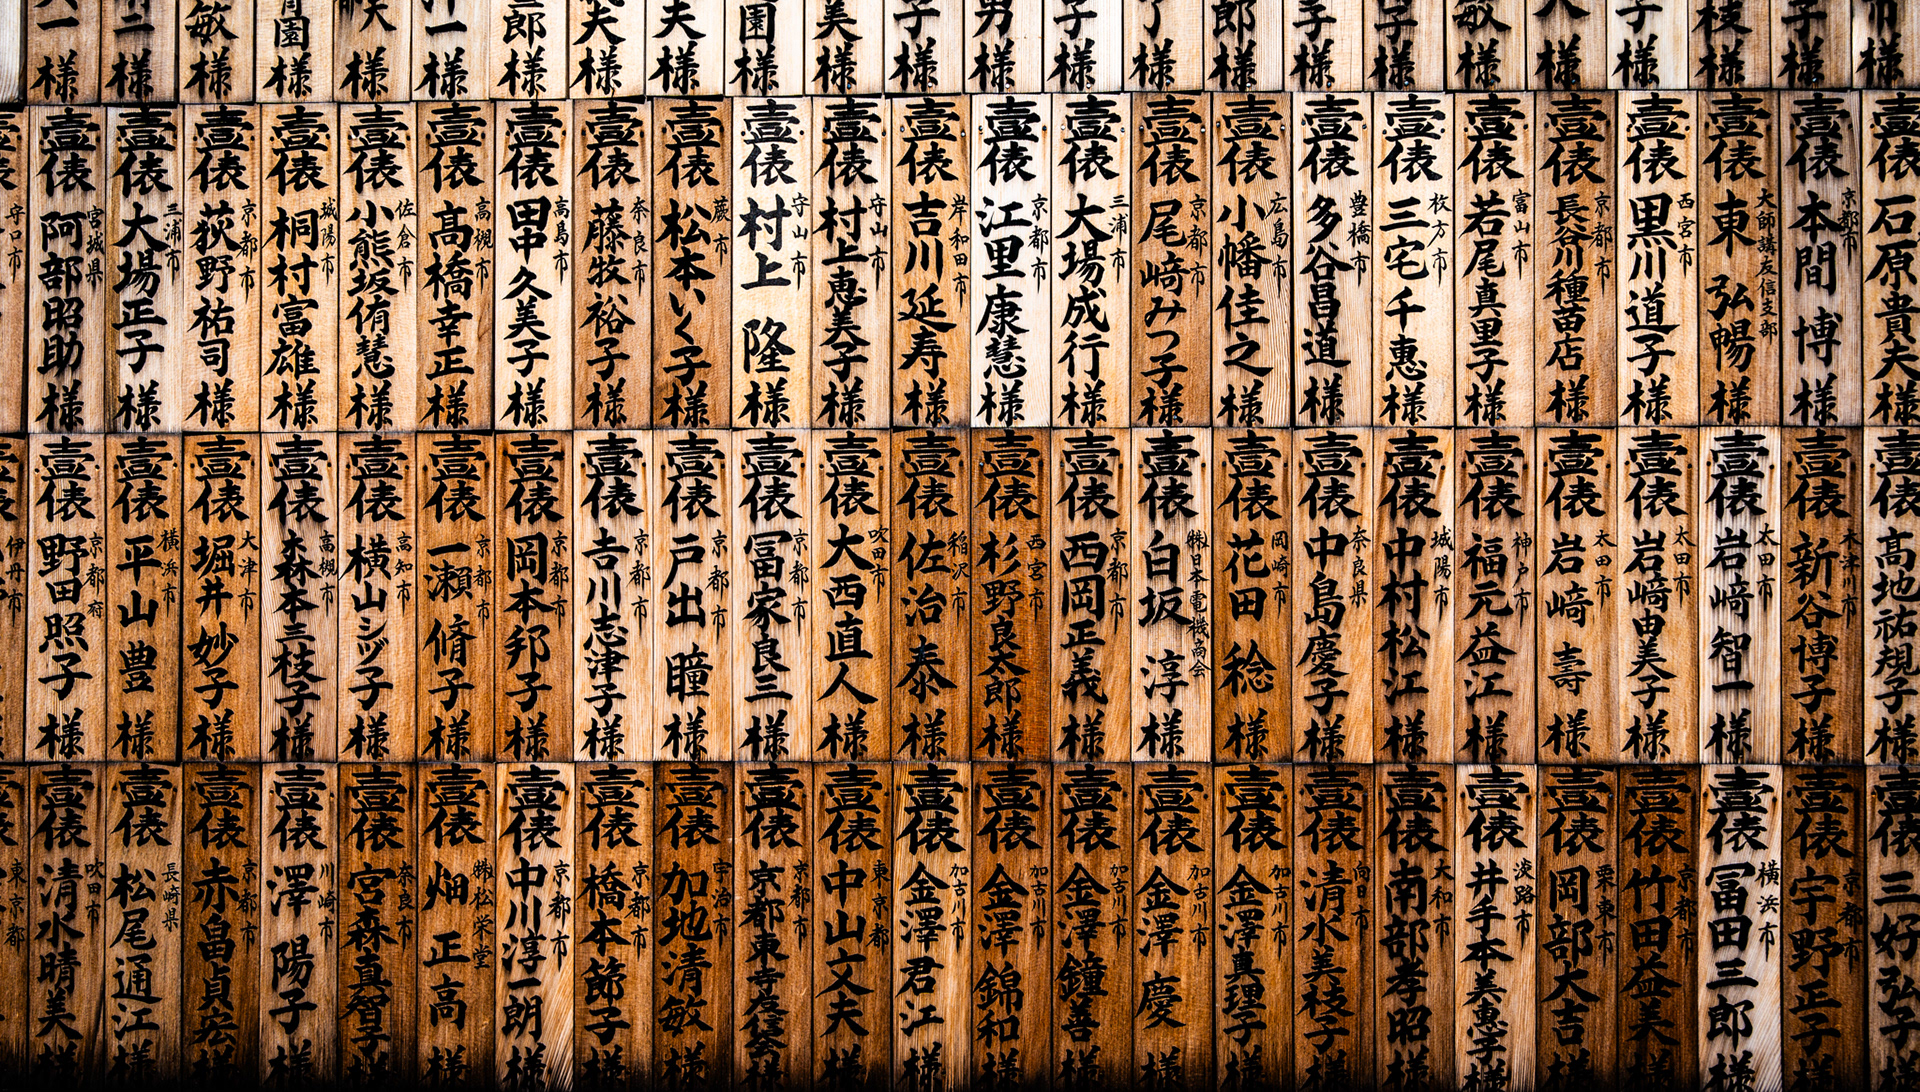 様
子様
枝様
子様
様
敏様
子様
子様
郎様
様
子様
男様
子様
美様
園様
夫様
夫様
郎様
一様
様
園様
敏様
二様
一様
壹俵 石原貴夫様
壹俵 京都市 本間博様
壹俵 大師講友信支部 東弘暢様
壹俵 西宮市 黒川道子様
壹俵 京都市 長谷川種苗店様
壹俵 富山市 若尾真里子様
壹俵 枚方市 三宅千惠様
壹俵 豊橋市 多谷昌道様
壹俵 広島市 小幡佳之様
壹俵 京都市 尾崎みつ子様
壹俵 三浦市 大場成行様
壹俵 京都市 江里康慧様
壹俵 岸和田市 吉川延寿様
壹俵 守山市 村上恵美子様
壹俵 守山市 村上隆様
壹俵 蕨市 松本いく子様
壹俵 奈良市 藤牧裕子様
壹俵 高島市 田中久美子様
壹俵 高槻市 髙橋幸正様
壹俵 佐倉市 小熊坂侑慧様
壹俵 城陽市 桐村富雄様
壹俵 京都市 荻野祐司様
壹俵 三浦市 大場正子様
壹俵 宮城県 阿部昭助様
守口市
壹俵 髙地祐規子様
壹俵 木津川市 新谷博子様
壹俵 太田市 岩﨑智一様
壹俵 太田市 岩﨑由美子様
壹俵 太田市 岩﨑壽様
壹俵 神戸市 福元益江様
壹俵 城陽市 中村松江様
壹俵 奈良県 中島慶子様
壹俵 岡崎市 花田稔様
壹俵 ㈱日本電機商会 白坂淳様
壹俵 京都市 西岡正義様
壹俵 西宮市 杉野良太郎様
壹俵 稲沢市 佐治泰様
壹俵 吹田市 大西直人様
壹俵 京都市 冨家良三様
壹俵 京都市 戸出瞳様
壹俵 京都市 𠮷川志津子様
壹俵 京都市 岡本邦子様
壹俵 京都市 一瀬脩子様
壹俵 高知市 横山シヅ子様
壹俵 高槻市 森本三枝子様
壹俵 大津市 堀井妙子様
壹俵 横浜市 平山豊様
壹俵 京都府 野田照子様
伊丹市
壹俵 三好弘子
壹俵 京都市 宇野正子様
壹俵 横浜市 冨田三郎様
壹俵 京都市 竹田益美様
壹俵 栗東市 岡部大吉様
壹俵 淡路市 井手本美惠子様
壹俵 大和市 南部孝昭様
壹俵 向日市 清水美枝子様
壹俵 加古川市 金澤真理子様
壹俵 加古川市 金澤慶様
壹俵 加古川市 金澤鐘善様
壹俵 加古川市 金澤錦和様
壹俵 加古川市 金澤君江様
壹俵 東京都 中山文夫様
壹俵 京都市 京都東寺度信会様
壹俵 宇治市 加地清敏様
壹俵 京都市 橋本節子様
壹俵 京都市 中川淳一朗様
壹俵 ㈱松栄堂 畑正高様
壹俵 奈良市 宮森真智子様
壹俵 川崎市 澤陽子様
壹俵 京都市 赤畠貞宏様
壹俵 長崎県 松尾通江様
壹俵 吹田市 清水晴美様
東京都